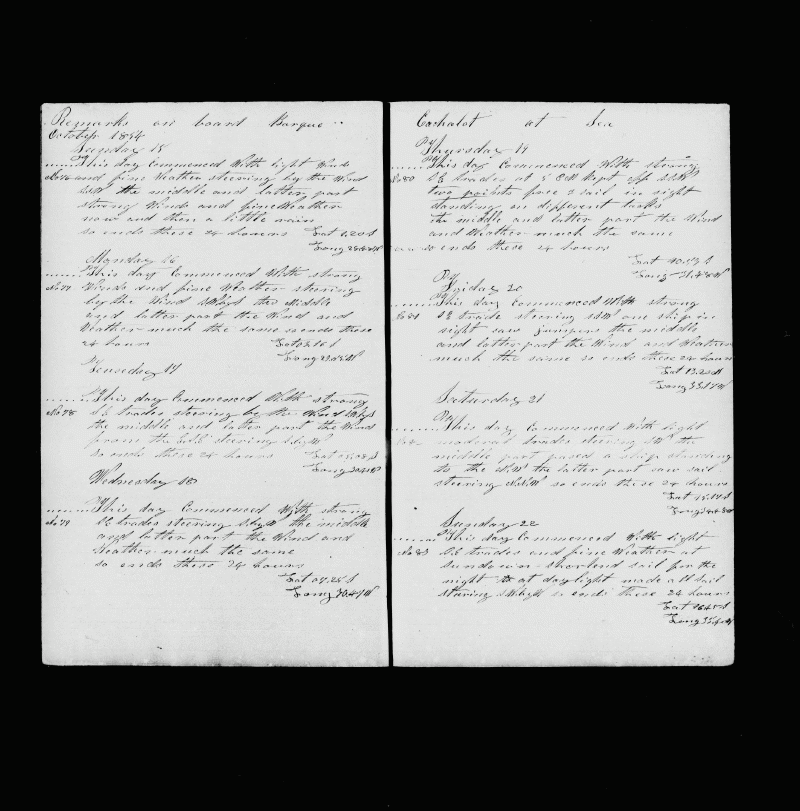 Remarks on board Barque
October 1854
Sunday 15
This day Commenced With light Winds
No 76 and fine Weather steering by the Wind
the middle and latter part
strong Winds and fine Weather
now and then a little rain
so ends these 24 hours Lat 1.20 S
Long
Monday 16
This day Commenced With strong
No 77 Winds and fine Weather steering
by the Wind the Middle
and latter part the Wind and
Weather much the same so ends these
24 hours Lat
Long
Tuesday 17
This day Commenced With strong
No 78 S E trades steering by the Wind
the middle and latter part the Wind
from the steering
so ends these 24 hours Lat
Long
Wednesday 18
This day Commenced With strong
No 79 S E trades steering the middle
and latter part the Wind and
Weather much the same
so ends these 24 hours
Lat 07.25 S
Long
Cachalot at Sea
Thursday 19
This day Commenced With strong
No 80 S E trades at 5 Kept off
two points free 2 sail in sight
standing on different tacks
the middle and latter part the Wind
and Weather much the same
so ends these 24 hours
Lat
Long
Friday 20
This day Commenced With strong
No 81 S E trade steering one ship in
sight saw jumpers the middle
and latter part the Wind and Weather
much the same so ends these 24 hours
Lat 13.20 S
Long
Saturday 21
This day Commenced With light
moderat trades steering the
middle part pased a ship standing
to the the latter part saw sail
steering so ends these 24 hours
Lat
Long
Sunday 22
This day Commenced With light
No 83 S E trades and fine Weather at
sundown shortend sail for the
night at daylight made all sail
steering so ends these 24 hours
Lat
Long